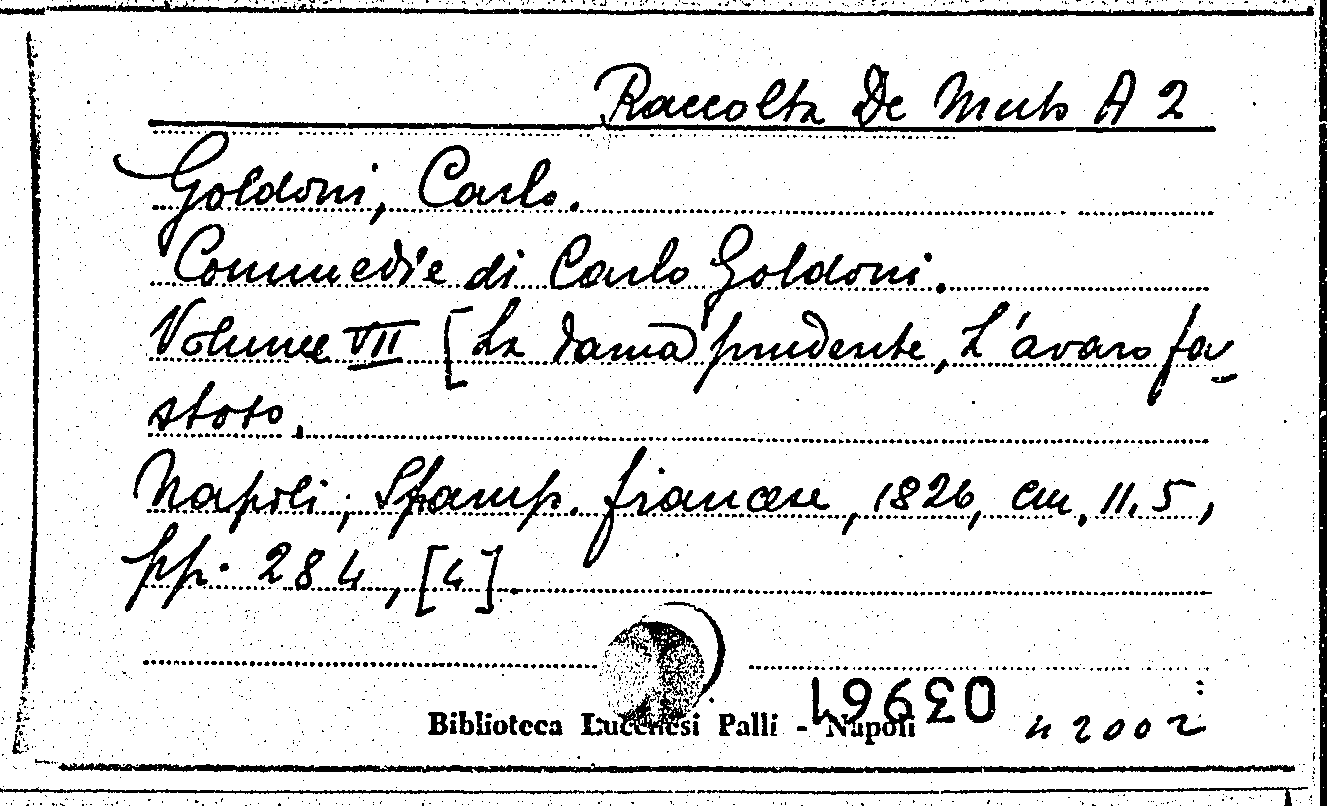 Raccolta De Muto A 2
Goldoni, Carlo.
Commedie di Carlo Goldoni.
Volume VII [La dama prudente, L'avaro fa-
stoso.
Napoli, Stamp. francese, 1826, cm. 11.5,
pp. 284, [4].
03961
Biblioteca Lucchesi Palli - Napoli